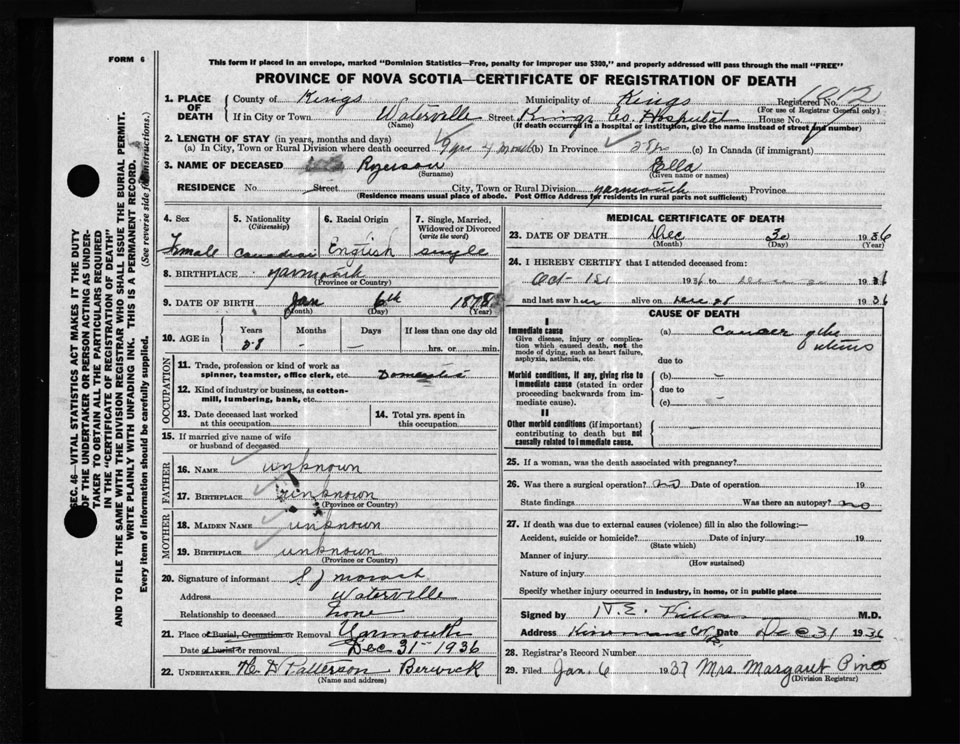 FORM 6
This form if placed in an envelope, marked "Dominion Statistics—Free, penalty for improper use $300," and properly addressed will pass through the mail "FREE"
PROVINCE OF NOVA SCOTIA—CERTIFICATE OF REGISTRATION OF DEATH
1. PLACE OF DEATH
County of Kings Municipality of Kings Registered No. 1912
(For use of Registrar General only)
If in City or Town Waterville Street Kings Co. Hospital House No.
(Name) (If death occurred in a hospital or institution, give the name instead of street and number)
2. LENGTH OF STAY (in years, months and days)
(a) In City, Town or Rural Division where death occurred 9 yrs 4 months (b) In Province (c) In Canada (if immigrant)
3. NAME OF DECEASED Ryerson Ella
(Surname) (Given name or names)
RESIDENCE No Street City, Town or Rural Division Yarmouth Province
(Residence means usual place of abode. Post Office Address for residents in rural parts not sufficient)
4. Sex
Female
5. Nationality
(Citizenship)
Canadian
6. Racial Origin
English
7. Single, Married, Widowed or Divorced
(write the word)
single
8. BIRTHPLACE Yarmouth
(Province or Country)
9. DATE OF BIRTH Jan 6th 1878
(Month) (Day) (Year)
10. AGE in
Years Months Days If less than one day old
58 - — hrs. or min.
OCCUPATION
11. Trade, profession or kind of work as spinner, teamster, office clerk, etc. Domestic
12. Kind of industry or business, as cotton-mill, lumbering, bank, etc.
13. Date deceased last worked at this occupation
14. Total yrs. spent in this occupation
15. If married give name of wife or husband of deceased
FATHER
16. NAME unknown
17. BIRTHPLACE unknown
(Province or Country)
MOTHER
18. MAIDEN NAME unknown
19. BIRTHPLACE unknown
(Province or Country)
20. Signature of informant
Address Waterville
Relationship to deceased None
21. Place of Burial, Cremation or Removal Yarmouth
Date of burial or removal Dec 31st 1936
22. UNDERTAKER Patterson Berwick
(Name and address)
MEDICAL CERTIFICATE OF DEATH
23. DATE OF DEATH Dec 30 1936
(Month) (Day) (Year)
24. I HEREBY CERTIFY that I attended deceased from:
Oct 1st 1936 to 1936
and last saw her alive on Dec 1936
CAUSE OF DEATH
I
Immediate cause
Give disease, injury or complication which caused death, not the mode of dying, such as heart failure, asphyxia, asthenia, etc.
(a) cancer of the uterus
due to
Morbid conditions, if any, giving rise to immediate cause (stated in order proceeding backwards from immediate cause).
(b) —
due to
(c) —
II
Other morbid conditions (if important) contributing to death but not causally related to immediate cause.
25. If a woman, was the death associated with pregnancy?
26. Was there a surgical operation? no Date of operation 19
State findings Was there an autopsy? no
27. If death was due to external causes (violence) fill in also the following:—
Accident, suicide or homicide? Date of injury 19
(State which)
Manner of injury
(How sustained)
Nature of injury
Specify whether injury occurred in industry, in home, or in public place
Signed by M.D.
Address Date Dec 31 1936
28. Registrar's Record Number
29. Filed Jan. 6 1937 Mrs. Margaret
(Division Registrar)
SEC. 46—VITAL STATISTICS ACT MAKES IT THE DUTY
OF THE UNDERTAKER OR PERSON ACTING AS UNDER-
TAKER TO OBTAIN ALL THE PARTICULARS REQUIRED
IN THE "CERTIFICATE OF REGISTRATION OF DEATH"
AND TO FILE THE SAME WITH THE DIVISION REGISTRAR WHO SHALL ISSUE THE BURIAL PERMIT.
WRITE PLAINLY WITH UNFADING INK. THIS IS A PERMANENT RECORD.
Every item of information should be carefully supplied. (See reverse side for instructions.)